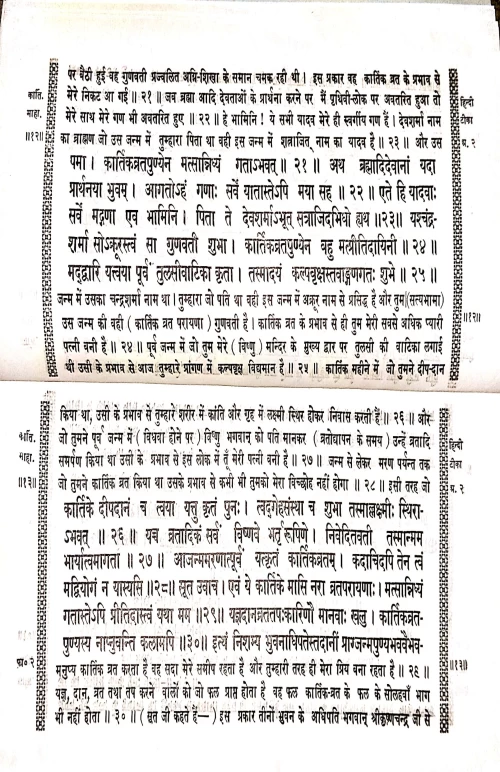 पर बैठी हुई वह गुणवती प्रज्वलित अग्नि-शिखा के समान चमक रही थी। इस प्रकार वह कार्तिक व्रत के प्रभाव से
कार्ति.
माहा.
॥१२॥
हिन्दी
टीका
अ. २
मेरे निकट आ गई ॥ २१ ॥ जब ब्रह्मा आदि देवताओं के प्रार्थना करने पर मैं पृथिवी-लोक पर अवतरित हुआ तो
मेरे साथ मेरे गण भी अवतरित हुए ॥ २२ ॥ हे भामिनि! ये सभी यादव मेरे ही स्वर्गीय गण हैं। देवशर्मा नाम
का ब्राह्मण जो उस जन्म में तुम्हारा पिता था वही इस जन्म में सत्राजित् नाम का यादव है ॥ २३ ॥ और उस
पमा। कार्तिकव्रतपुण्येन मत्सान्निध्यं गताऽभवत् ॥ २१ ॥ अथ ब्रह्मादिदेवानां यदा
प्रार्थनया भुवम्। आगतोऽहं गणाः सर्वे यातास्तेऽपि मया सह ॥ २२ ॥ एते हि यादवाः
सर्वे मद्गणा एव भामिनि। पिता ते देवशर्माऽभूत् सत्राजिदभिधो ह्यथ ॥२३॥ यश्चंद्र-
शर्मा सोऽक्रूरस्त्वं सा गुणवती शुभा। कार्तिकव्रतपुण्येन बहु मत्प्रीतिदायिनी ॥ २४ ॥
मद्द्वारि यत्त्वया पूर्वं तुलसीवाटिका कृता। तस्मादयं कल्पवृक्षस्तवाङ्गणगतः शुभे ॥ २५ ॥
जन्म में उसका चन्द्रशर्मा नाम था। तुम्हारा जो पति था वही इस जन्म में अक्रूर नाम से प्रसिद्ध है और तुम (सत्यभामा)
उस जन्म की वही ( कार्तिक व्रत परायणा ) गुणवती है। कार्तिक व्रत के प्रभाव से ही तुम मेरी सबसे अधिक प्यारी
॥१२॥
पत्नी बनी है ॥ २४ ॥ पूर्व जन्म में जो तुम मेरे ( विष्णु ) मन्दिर के मुख्य द्वार पर तुलसी की वाटिका लगाई
थी उसी के प्रभाव से आज तुम्हारे प्रांगण में कल्पवृक्ष विद्यमान है ॥ २५ ॥ कार्तिक महीने में जो तुमने दीप-दान
किया था, उसी के प्रभाव से तुम्हारे शरीर में कांति और गृह में लक्ष्मी स्थिर होकर निवास करती हैं ॥ २६ ॥ और
कार्ति.
माहा.
॥१३॥
हिन्दी
टीका
अ. २
जो तुमने पूर्व जन्म में ( विधवा होने पर ) विष्णु भगवान् को पति मानकर ( व्रतोद्यापन के समय ) उन्हें व्रतादि
समर्पण किया था उसी के प्रभाव से इस लोक में तूँ मेरी पत्नी बनी है ॥ २७ ॥ जन्म से लेकर मरण पर्यन्त तक
जो तुमने कार्तिक व्रत किया था उसके प्रभाव से कभी भी तुमको मेरा विच्छोह नहीं होगा ॥ २८ ॥ इसी तरह जो
कार्तिके दीपदानं च त्वया यत्तु कृतं पुनः। त्वद्गेहसंस्था च शुभा तस्माल्लक्ष्मीः स्थिरा-
ऽभवत् ॥ २६ ॥ यच्च व्रतादिकं सर्वं विष्णवे भर्तृरूपिणे। निवेदितवती तस्मान्मम
भार्यात्वमागता ॥ २७ ॥ आजन्ममरणात्पूर्वं यत्कृतं कार्तिकव्रतम्। कदाचिदपि तेन त्वं
मद्वियोगं न यास्यसि ॥२८॥ सूत उवाच। एवं ये कार्तिके मासि नरा व्रतपरायणाः। मत्सान्निध्यं
गतास्तेऽपि प्रीतिदास्त्वं यथा मम ॥२९॥ यज्ञदानव्रततपःकारिणो मानवाः खलु। कार्तिकव्रत-
पुण्यस्य नाप्नुवन्ति कलामपि ॥३०॥ इत्थं निशम्य भुवनाधिपतेस्तदानीं प्राग्जन्मपुण्यभववैभव-
पा० २
मनुष्य कार्तिक व्रत करता है वह सदा मेरे समीप रहता है और तुम्हारी तरह ही मेरा प्रिय बना रहता है ॥ २९ ॥
॥१३॥
यज्ञ, दान, व्रत तथा तप करने वालों को जो फल प्राप्त होता है वह फल कार्तिक-व्रत के फल के सोलहवाँ भाग
भी नहीं होता ॥ ३० ॥ ( सूत जी कहते हैं—) इस प्रकार तीनों भुवन के अधिपति भगवान् श्रीकृष्णचन्द्र जी से